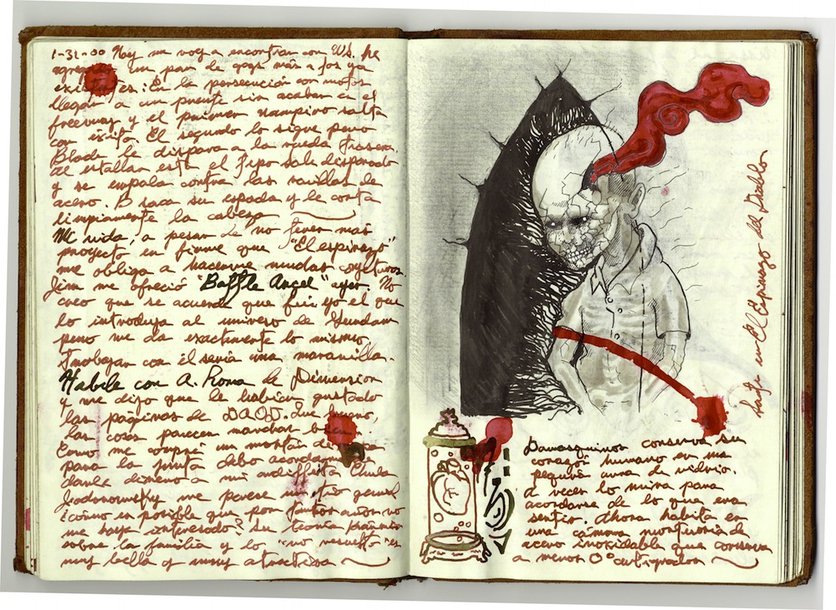 1-31-00 Hoy me voy a encontrar con W.S. he
agregado un par de gags más a los ya
existentes: En la persecución con motos
llegan a un puente sin acabar en el
freeway y el primer vampiro salta
con éxito. El segundo lo sigue pero
Blade le dispara a la rueda trasera.
Al estallar esta el tipo sale disparado
y se empala contra las varillas de
acero. B saca su espada y le corta
limpiamente la cabeza
Mi vida, a pesar de no tener más
proyecto en firme que "El espinazo"
me obliga a hacerme muchas
Jim me ofreció "Battle Angel" ayer. No
creo que se acuerde que fui yo el que
lo introdujo al universo de
pero me da exactamente lo mismo.
Trabajar con él sería una maravilla.
Hable con A. Rona de Dimension
y me dijo que le habían gustado
las páginas de DAOD. Que bueno,
las cosas parecen marchar bien
Como me compré un montón de
para la junta debo acordarme
darle dinero a mi
Jodorowsky me parece un tío genial
¿cómo es posible que por tantos años no
me haya interesado? Su teoría
sobre la familia y lo "no resuelto" es
muy bella y muy atractiva
Santi en El Espinazo del Diablo
Damasquinos conserva su
corazón humano en una
pequeña urna de vidrio.
A veces lo mira para
acordarse de lo que era
sentir. Ahora habita en
una cámara mortuoria de
acero inoxidable que conserva
a menos 0°